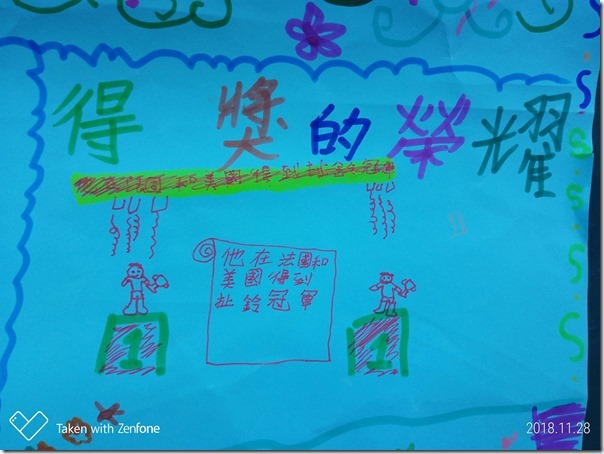 得獎的榮耀
國和美國得到扯鈴冠軍
他在法國和
美國得到
扯鈴冠軍
1
1
Taken with Zenfone
2018.11.28